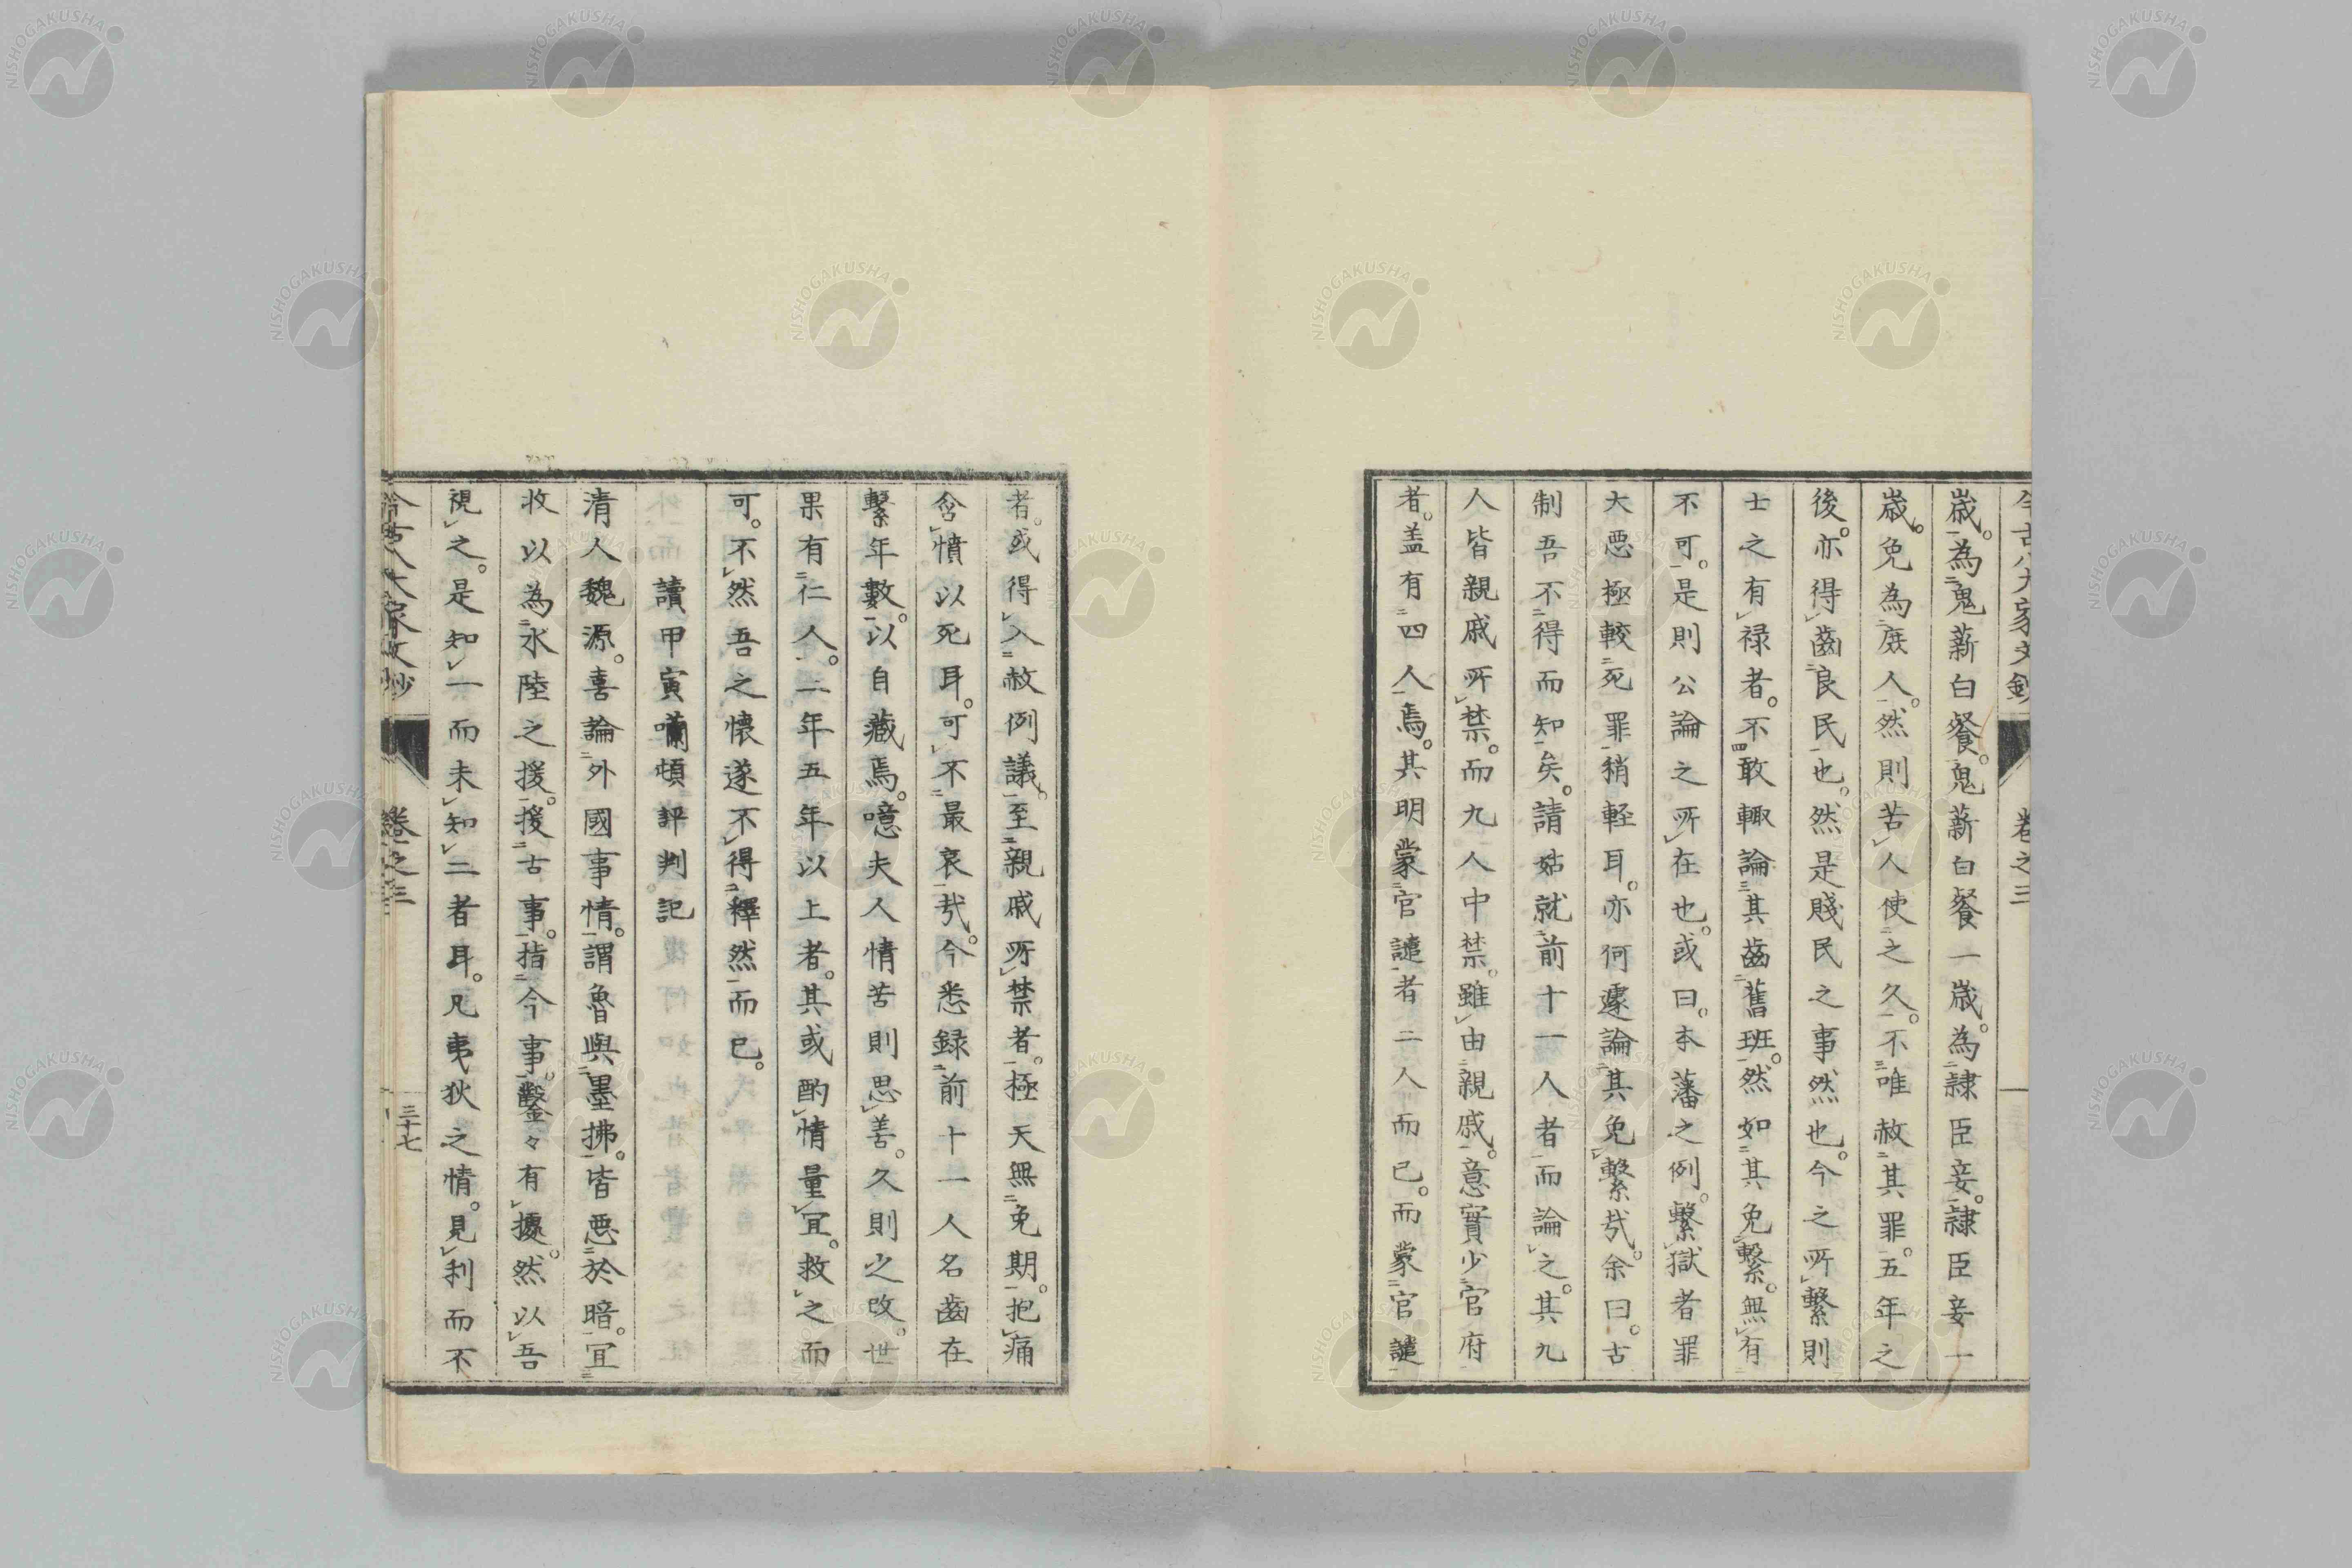 今古八大家文鈔 卷之三
歳。為鬼薪白餐。鬼薪白餐一歳。為隷臣妾。隷臣妾一
歳。免為庶人。然則苦人使之久。不唯赦其罪。五年之
後。亦得齒良民也。然是賤民之事然也。今之所繋則
士之有禄者。不敢輙論其齒舊班。然如其免繋。無有
不可。是則公論之所在也。或曰。本藩之例。繋獄者罪
大悪極較死罪稍軽耳。亦何遽論其免繋㢤。余曰。古
制吾不得而知矣。請姑就前十一人者而論之。其九
人皆親戚所禁。而九人中禁。雖由親戚。意實少官府
者。盖有四人焉。其明蒙官譴者二人而已。而蒙官譴
者。或得入赦例議。至親戚所禁者。極天無免期。抱痛
含憤以死耳。可不最哀㢤。今悉録前十一人名齒在
繋年數。以自藏焉。噫夫人情苦則思善。久則之改。世
果有仁人。二年五年以上者。其或酌情量冝。救之而
可。不然吾之懐遂不得釋然而已。
讀甲寅囒頓評判記
清人魏源。喜論外國事情。謂魯與墨拂。皆悪於暗。冝
收以為水陸之援。援古事。指今事。鑿々有據。然以吾
視之。是知一而未知二者耳。凡夷狄之情。見利而不
今古八大家文鈔 卷之三 三十七
NISHOGAKUSHA